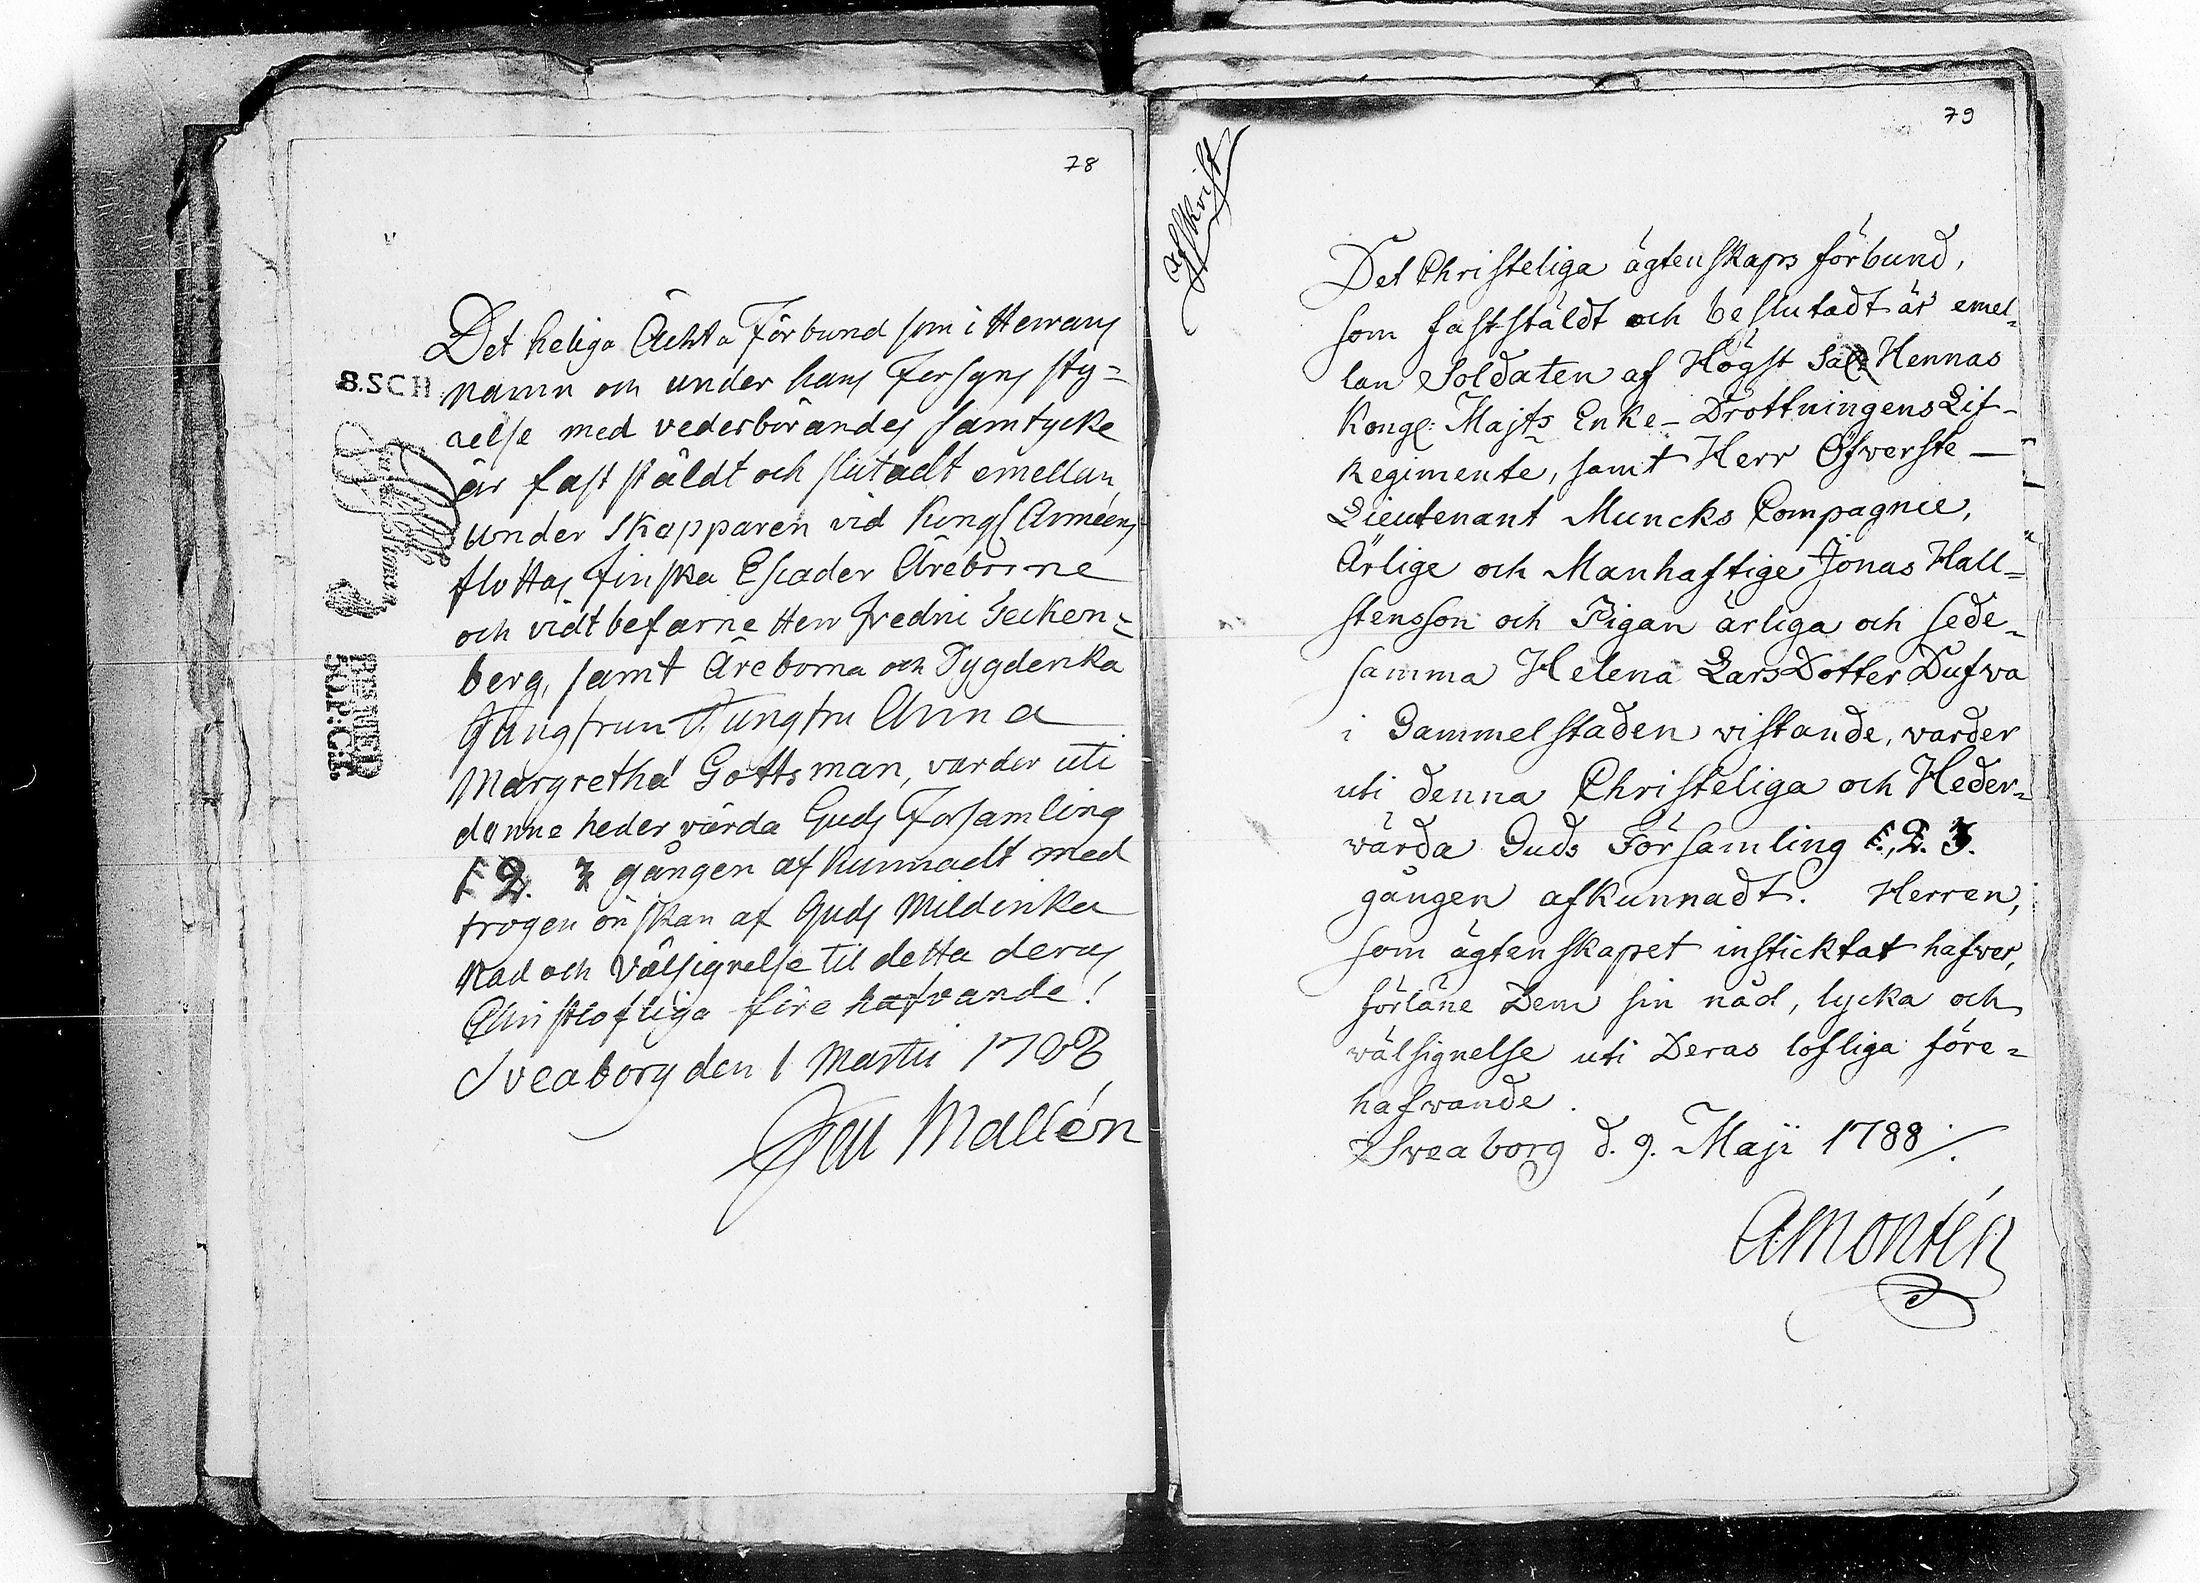 78
Det heliga Ächta Förbund som i Herrans
namn och under hans Försyns sty=
8.SCH.
relse med vederbörandes samtycke
är fast stäldt och slutadt emellan
under Skepparen vid Kongl Arméens
flottas finska Escader Äreborne
och vidtbefarne Herr Fredric Secken=
berg, samt Äreborna och Dygderika
Jungfrun Jungfru Anna
Margretha Gottsman, varder uti
denne heder värda Guds Församling
1. 2. 3 gången af kunnadt med
trogen önskan af Guds Mildrika
Nåd och Välsignelse til detta deras
Christlofliga före hafvande!
Sveaborg den 1 Martii 1788
Mallén

79
Afskrift
Det Christeliga ägtenskaps förbund,
som fastställdt och beslutadt är emel=
lan Soldaten af Högst Sal. Hennas
Kongl: Majts Enke-Drottningens Lif-
Regimente, samt Herr Öfwerste-
Lieutenant Muncks Compagnie,
Ärlige och Manhaftige Jonas Hall=
stensson och Pigan ärliga och sede=
samma Helena LarsDotter Dufwa
i Gammelstaden wistande, warder
uti denna Christeliga och Heder=
wärda Guds Församling 1., 2. 3.
gången afkunnadt. Herren,
som ägtenskapet insticktat hafwer,
förläne Dem sin nåd, lycka och
wälsignelse uti Deras lofliga före=
hafwande.
Sweaborg d. 9. Maji 1788 /.
AMontén